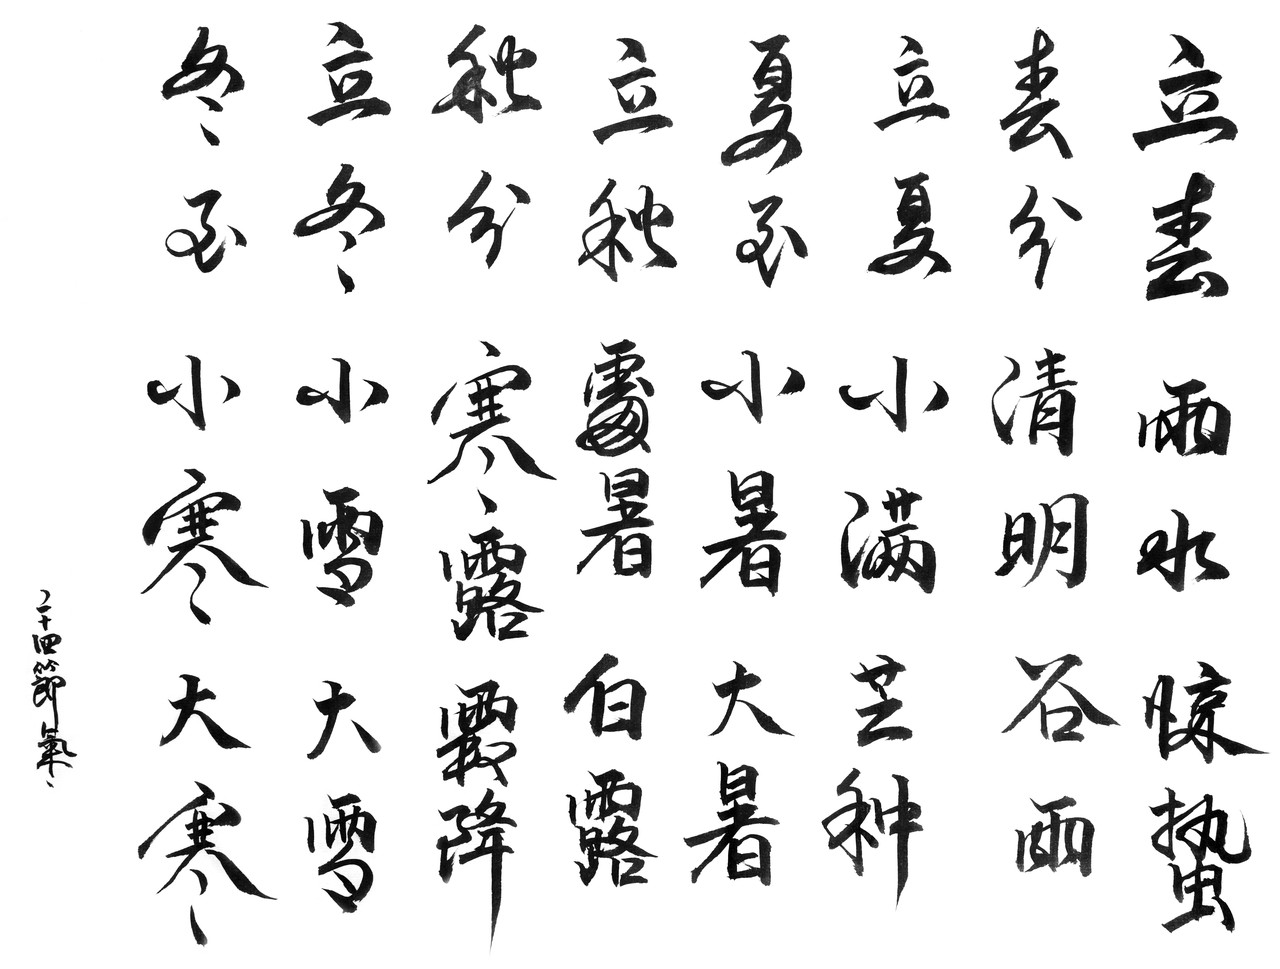 立春 雨水 惊蛰
春分 清明 谷雨
立夏 小满 芒种
夏至 小暑 大暑
立秋 處暑 白露
秋分 寒露 霜降
立冬 小雪 大雪
冬至 小寒 大寒
二十四節氣